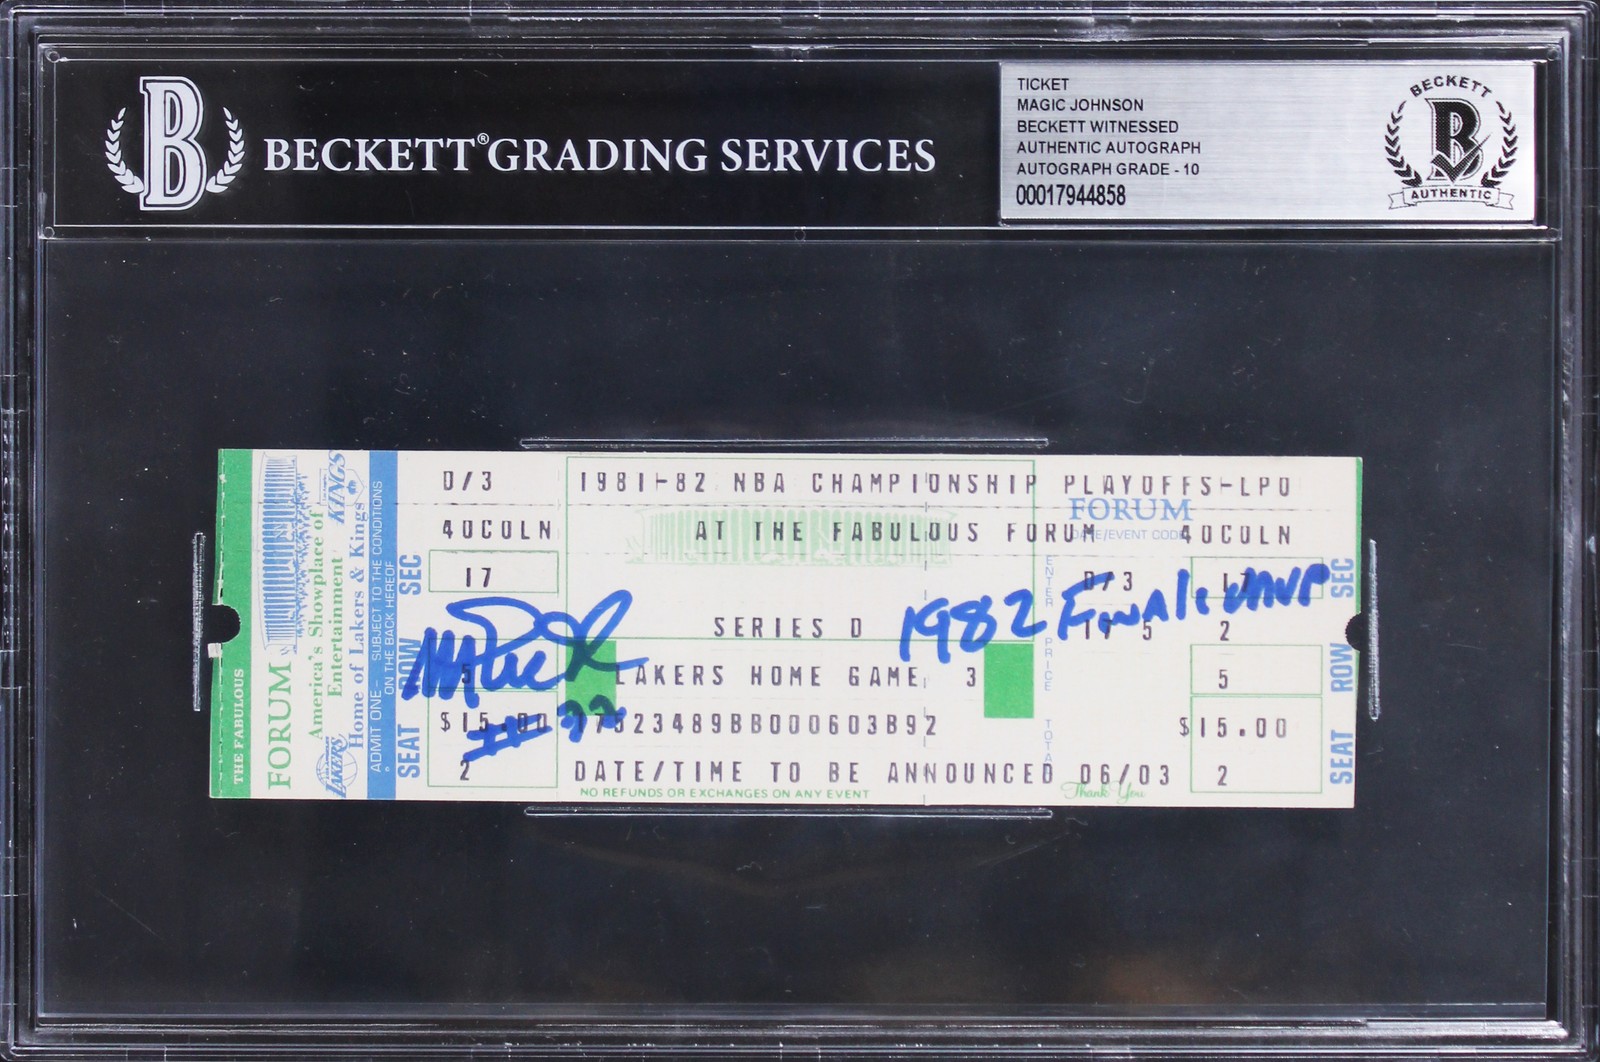 BECKETT® GRADING SERVICES
TICKET
MAGIC JOHNSON
BECKETT WITNESSED
AUTHENTIC AUTOGRAPH
AUTOGRAPH GRADE - 10
00017944858
BECKETT
B
AUTHENTIC
THE FABULOUS
FORUM
America's Showplace of
Entertainment
Home of Lakers & Kings
KINGS
LAKERS
ADMIT ONE - SUBJECT TO THE CONDITIONS
ON THE BACK HEREOF
SEAT ROW SEC
D/3
40COLN
17
5
$15.00
2
1981-82 NBA CHAMPIONSHIP PLAYOFFS-LPO
AT THE FABULOUS FORUM 40COLN
FORUM
DATE/EVENT CODE
SERIES D
LAKERS HOME GAME 3
17523489BB000603B92
DATE/TIME TO BE ANNOUNCED 06/03
NO REFUNDS OR EXCHANGES ON ANY EVENT
Thank You
ENTER PRICE TOTAL
D/3
17
2
5
$15.00
2
SEAT ROW SEC
Magic Johnson
#32
1982 Finals MVP